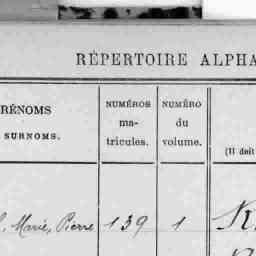 RÉPERTOIRE ALPHA
RÉNOMS
SURNOMS.
NUMÉROS
ma-
tricules.
NUMÉRO
du
volume.
(Il doit
Marie, Pierre 139 1